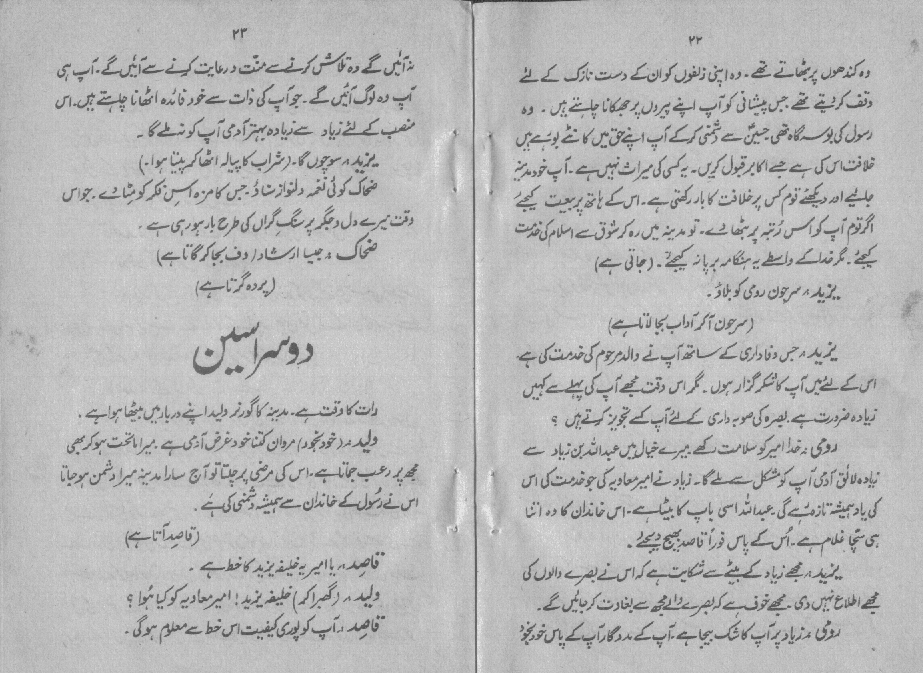 ۲۲
وہ کندھوں پر بٹھاتے تھے۔ وہ اپنی زلفوں کو ان کے دست نازک کے لئے
وقف کر دیتے تھے جس پیشانی کو آپ اپنے پیروں پر جھکانا چاہتے ہیں۔ وہ
رسول کی بوسہ گاہ تھی حسینؑ سے دشمنی کر کے آپ اپنے حق میں کانٹے بو رہے ہیں
خلافت اس کی ہے جسے اکابر قبول کریں۔ یہ کسی کی میراث نہیں ہے۔ آپ خود مدینہ
جائیے اور دیکھئے قوم کس پر خلافت کا بار رکھتی ہے۔ اس کے ہاتھ پر بیعت کیجئے
اگر قوم آپ کو اس رُتبہ پر بٹھا دے۔ تو مدینہ میں رہ کر شوق سے اسلام کی خدمت
کیجئے۔ مگر خدا کے واسطے یہ ہنگامہ برپا نہ کیجئے۔ (جاتی ہے)
یزید :۔ سرجون رومی کو بلاؤ۔
(سرجون آکر آداب بجا لاتا ہے)
یزید :۔ جس وفاداری کے ساتھ آپ نے والد مرحوم کی خدمت کی ہے
اس کے لئے میں آپ کا شکر گزار ہوں۔ مگر اس وقت مجھے آپ کی پہلے سے کہیں
زیادہ ضرورت ہے۔ بصرہ کی صوبہ داری کے لئے آپ کسے تجویز کرتے ہیں ؟
رومی :۔ خدا امیر کو سلامت رکھے۔ میرے خیال میں عبداللہ بن زیاد سے
زیادہ لائق آدمی آپ کو مشکل سے ملے گا۔ زیاد نے امیر معاویہ کی جو خدمت کی اس
کی یاد ہمیشہ تازہ رہے گی۔ عبداللہ اسی باپ کا بیٹا ہے۔ اس خاندان کا وہ اتنا
ہی سچّا غلام ہے۔ اُس کے پاس فوراً قاصد بھیج دیجئے۔
یزید :۔ مجھے زیاد کے بیٹے سے شکایت ہے کہ اس نے بصرے والوں کی
مجھے اطلاع نہیں دی۔ مجھے خوف ہے کہ بصرے والے مجھ سے بغاوت کر جائیں گے۔
رومی :۔ زیاد پر آپ کا شک بیجا ہے۔ آپ کے مددگار آپ کے پاس خود بخود
۲۳
نہ آئیں گے وہ تلاش کرنے سے منّت و رعایت کرنے سے آئیں گے۔ آپ ہی
آپ وہ لوگ آئیں گے۔ جو آپ کی ذات سے خود فائدہ اٹھانا چاہتے ہیں۔ اس
منصب کے لئے زیاد سے زیادہ بہتر آدمی آپ کو نہ ملے گا۔
یزید :۔ سوچوں گا۔ (شراب کا پیالہ اٹھا کر پیتا ہوا۔)
ضحاک کوئی نغمہ دلنواز سناؤ۔ جس کا مزہ اس فکر کو مٹا دے۔ جو اس
وقت میرے دل و جگر پر سنگ گراں کی طرح بار ہو رہی ہے۔
ضحاک :۔ جیسا ارشاد (دف بجا کر گاتا ہے)
(پردہ گرتا ہے)
دوسرا سین
رات کا وقت ہے۔ مدینہ کا گورنر ولید اپنے دربار میں بیٹھا ہوا ہے۔
ولید :۔ (خود بخود) مروان کتنا خود غرض آدمی ہے۔ میرا ماتحت ہو کر بھی
مجھ پر رعب جماتا ہے۔ اس کی مرضی پر چلتا تو آج سارا مدینہ میرا دشمن ہو جاتا
اس نے رسول کے خاندان سے ہمیشہ دشمنی کی ہے۔
(قاصد آتا ہے)
قاصد :۔ یا امیر یہ خلیفہ یزید کا خط ہے۔
ولید :۔ (گھبرا کر) خلیفہ یزید! امیر معاویہ کو کیا ہوا ؟
قاصد :۔ آپ کو پوری کیفیت اس خط سے معلوم ہوگی۔